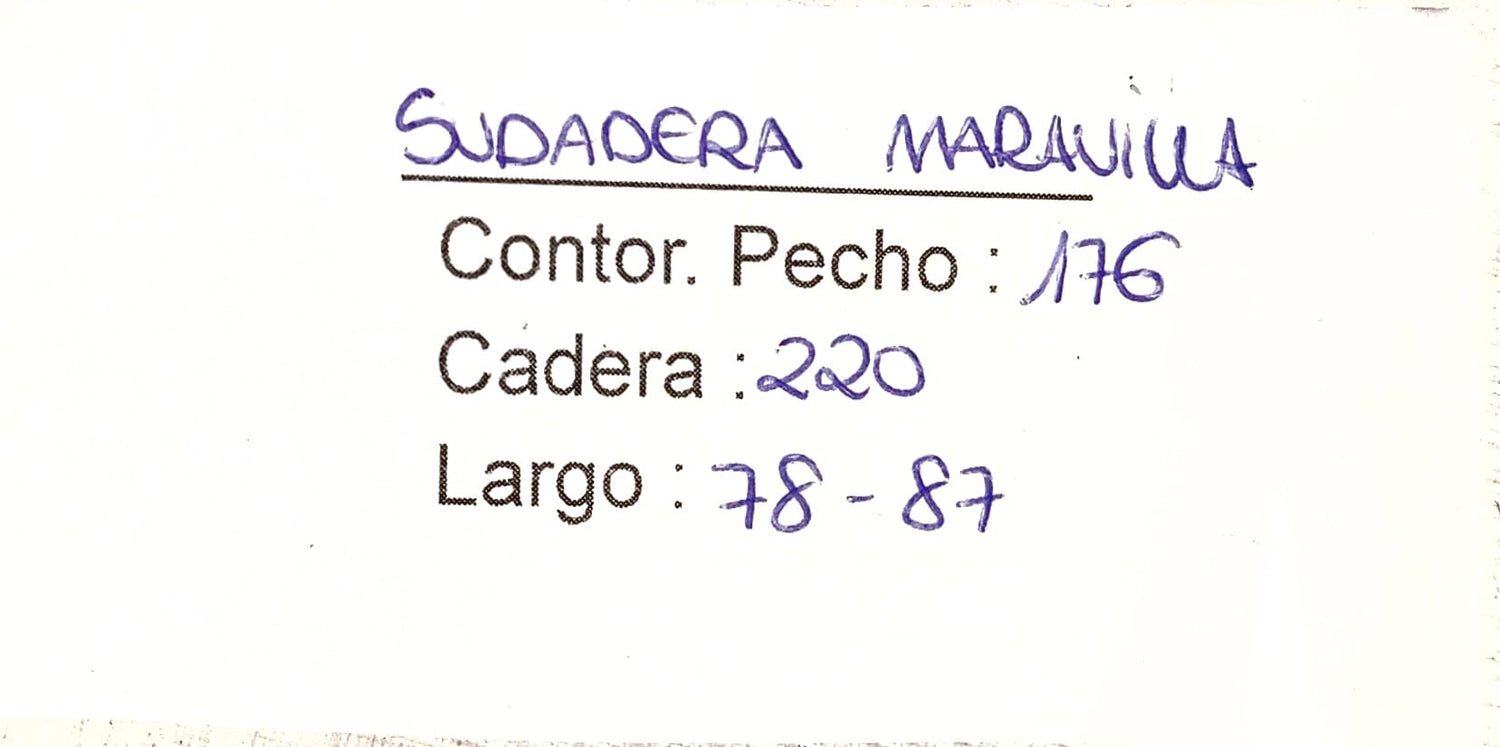 SUDADERA MARAVILLA
Contor. Pecho : 176
Cadera : 220
Largo : 78 - 87